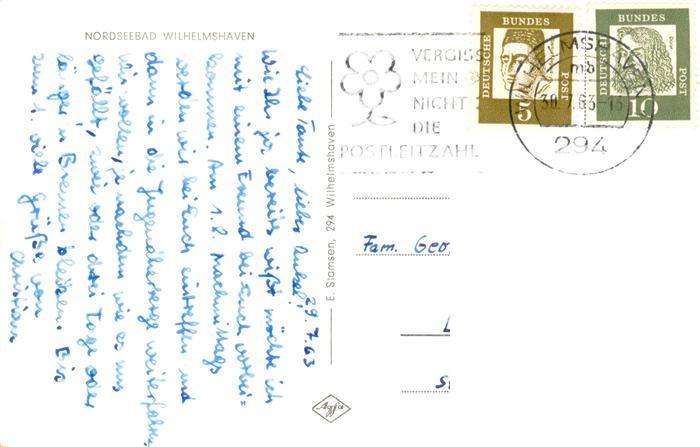 NORDSEEBAD WILHELMSHAVEN
29.7.63
Liebe Tante, lieber Onkel!
Wie Ihr ja bereits wißt möchte ich
mit einem Freund bei Euch vorbei=
kommen. Am 1.8. nachmittags
werden wir bei Euch eintreffen und
dann in die Jugendherberge weiterfahren.
Wir wollen, je nachdem wie es uns
gefällt, zwei oder drei Tage oder
länger in Bremen bleiben. Bis
zum 1. viele Grüße von
Christian
E. Siamsen, 294 Wilhelmshaven
Agfa
VERGISS
MEIN
NICHT
DIE
POSTLEITZAHL
DEUTSCHE
BUNDES
POST
5
DEUTSCHE
BUNDES
POST
10
WILHELMSHAVEN
mb
30.7.63-15
294
Fam. Geo